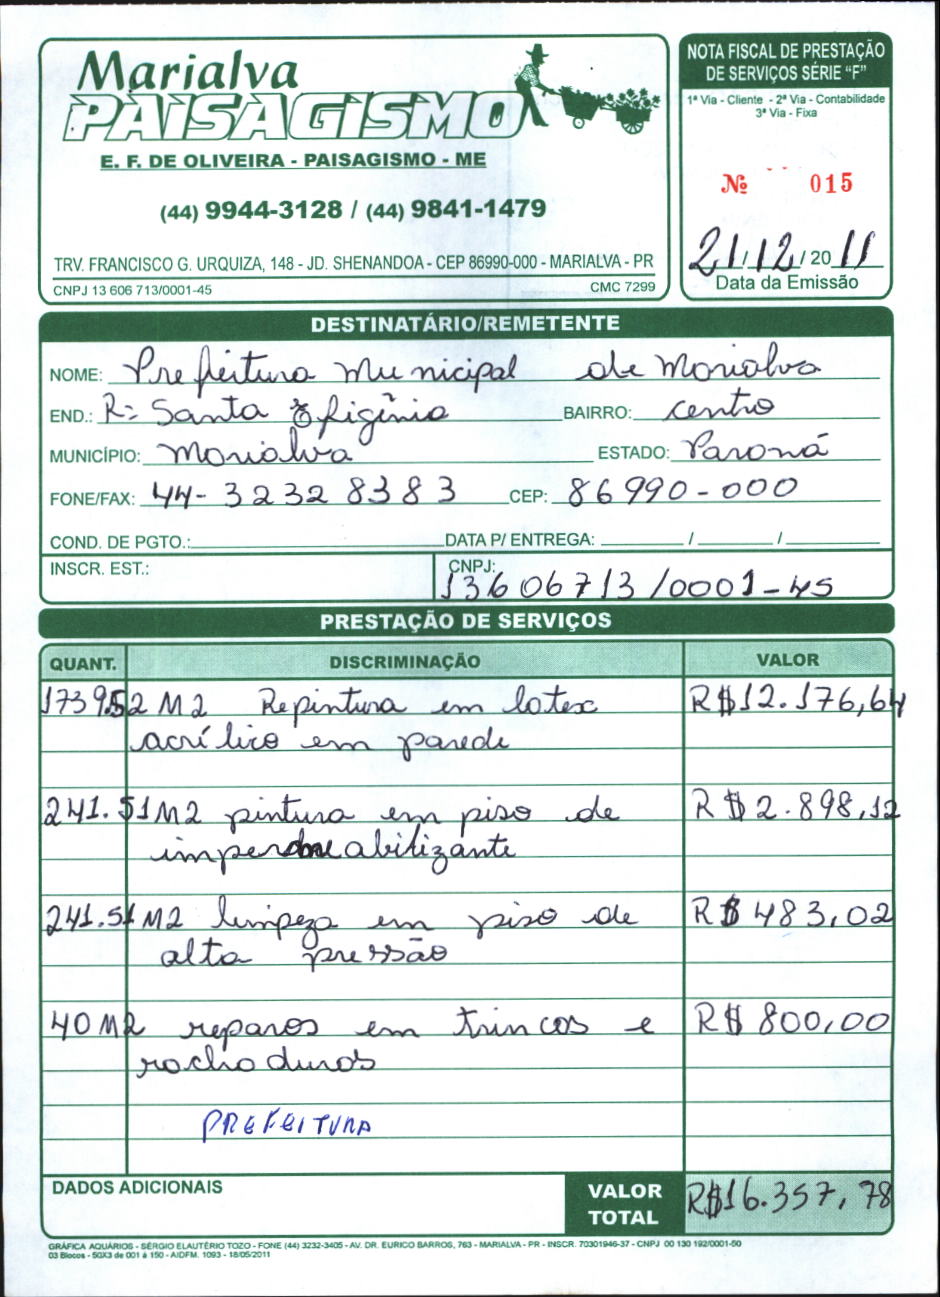 Marialva
PAISAGISMO
E. F. DE OLIVEIRA - PAISAGISMO - ME
(44) 9944-3128 / (44) 9841-1479
TRV. FRANCISCO G. URQUIZA, 148 - JD. SHENANDOA - CEP 86990-000 - MARIALVA - PR
CNPJ 13 606 713/0001-45 CMC 7299
NOTA FISCAL DE PRESTAÇÃO
DE SERVIÇOS SÉRIE “F”
1ª Via - Cliente - 2ª Via - Contabilidade
3ª Via - Fixa
Nº 015
21/12/2011
Data da Emissão
DESTINATÁRIO/REMETENTE
NOME: Prefeitura Municipal de Marialva
END.: R: Santa Efigênia BAIRRO: centro
MUNICÍPIO: Marialva ESTADO: Paraná
FONE/FAX: 44-3232 8383 CEP: 86990-000
COND. DE PGTO.: DATA P/ ENTREGA: / /
INSCR. EST.: CNPJ: 13606713/0001-45
PRESTAÇÃO DE SERVIÇOS
QUANT. DISCRIMINAÇÃO VALOR
1739.52 M2 Repintura em latex R$12.176,64
acrílico em parede
241.51 M2 pintura em piso de R$2.898,12
impermeabilizante
241.51 M2 limpeza em piso de R$483,02
alta pressão
40 M2 reparos em trincas e R$800,00
rachaduras
PREFEITURA
DADOS ADICIONAIS
VALOR TOTAL R$16.357,78
GRÁFICA AQUÁRIOS - SÉRGIO ELAUTÉRIO TOZO - FONE (44) 3232-3405 - AV. DR. EURICO BARROS, 763 - MARIALVA - PR - INSCR. 70301946-37 - CNPJ 00 130 192/0001-50
03 Blocos - 50X3 de 001 á 150 - AIDFM. 1093 - 18/05/2011